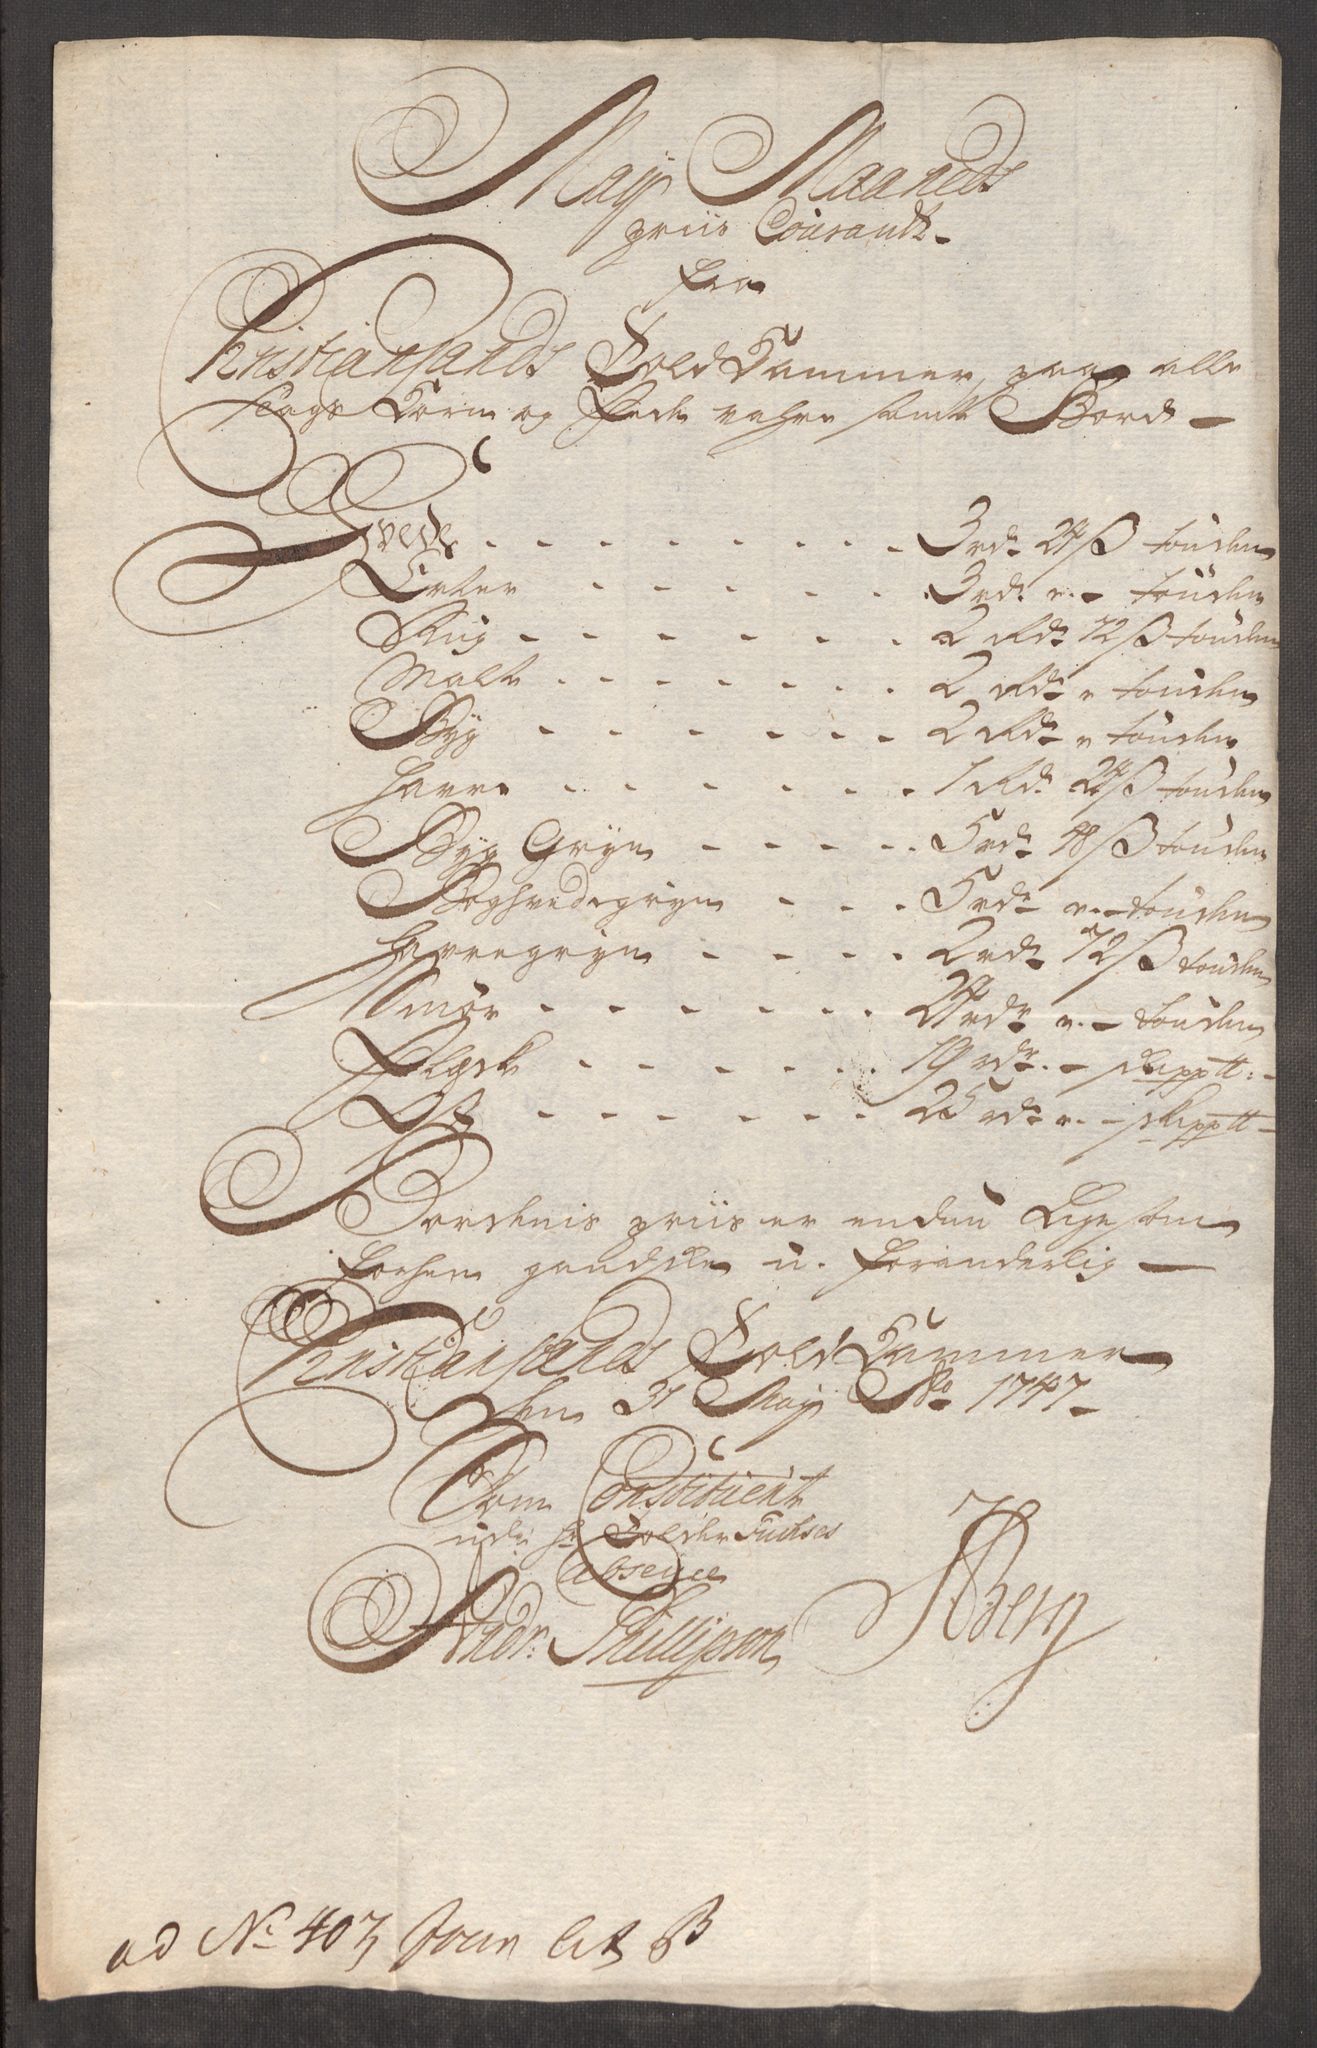 Maÿ Maaneds
priis Couranth
fra
Christiansands Told Kammer, paa alle
slags Korn og fede vahre samt Bord
Hvede - - - - - - - - 3 rd. 24 ß tønden
Erter - - - - - - 3 rd. " - tønden
Rug - - - - - - 2 Rd. 72 ß tønden
Malt - - - - - - - 2 Rd. " tønden
Byg - - - - - - 2 Rd. " tønden
Havre - - - - - - 1 Rd. 24 ß tønden
Byg Gryn - - - - - 5 rd. 48 ß tønden
Boghvedegryn - - - 5 rd. " - tønden
Havregryn - - - - 2 rd. 72 ß tønden
Smør - - - - - - 24 rd. " - tønden
Flesk - - - - - - 19 rd. - skipptt:
Ost - - - - - - 25 rd. " - skipptt
Bordenis priis er endnu Ligesom
forhen gandske u-foranderlig
Christiansands Told Kammer
den 31 Maÿ Ao 1747
Som Constitueret
udi Hr. Tolder Fuchses
Absence
Andr: Phillipson
Berg
ad No 403 Jour Lit B